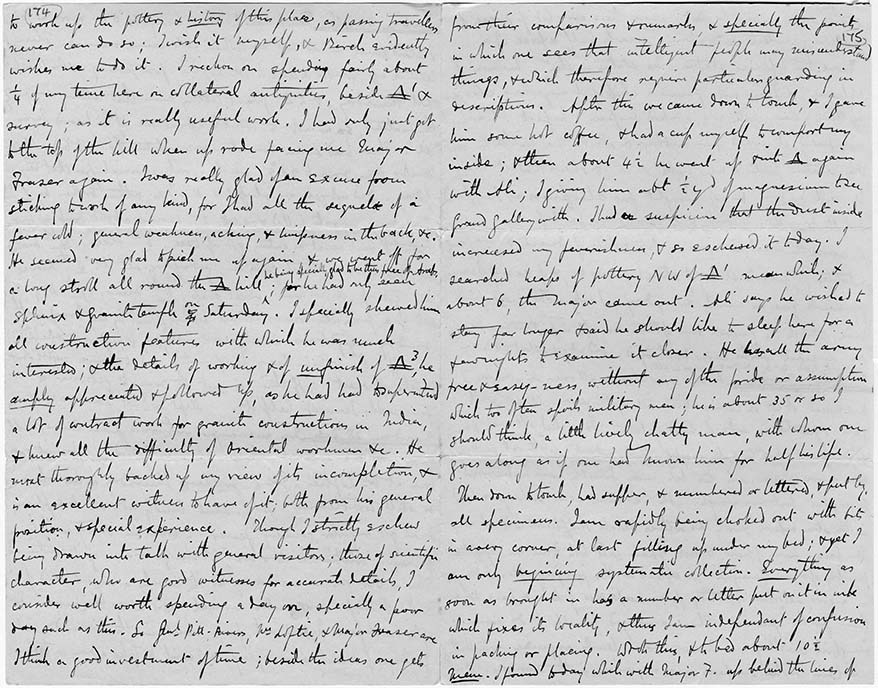 174
to work up the pottery & history of this place, as passing travellers
never can do so; I wish it myself, & Birch evidently
wishes me to do it. I reckon on spending fairly about
¼ of my time here on collateral antiquities, beside Δ¹ &
survey; as it is really useful work. I had only just got
to the top of the hill when up rode facing me Major
Fraser again. I was really glad of an excuse from
sticking to work of any kind, for I had all the sequelæ of a
fever cold; general weakness, aching, & limpness in the back, &c.
He seemed very glad to pick me up again & we went off for
a long stroll all round the Δ hill, he being specially glad to be thus free of Arabs;
for he had only seen
Sphinx & granite temple on Saturday. I specially shewed him
all construction features with which he was much
interested; & the details of working & of unfinish of Δ³, he
amply appreciated & followed up, as he had had to superintend
a lot of contract work for granite constructions in India,
& knew all the difficulty of Oriental workmen &c. He
most thoroughly backed up my view of its incompletion, &
is an excellent witness to have of it, both from his general
position, & special experience. Though I strictly eschew
being drawn into talk with general visitors, those of scientific
character, who are good witnesses for accurate details, I
consider well worth spending a day on, specially a poor
day such as this. So Genl. Pitt-Rivers, Mr Loftie, & Major Fraser are
I think a good investment of time; beside the ideas one gets
175
from their comparisons & remarks, & specially the points
in which one sees that intelligent people may misunderstand
things, & which therefore require particular guarding in
descriptions. After this we came down to tomb, & I gave
him some hot coffee, & had a cup myself to comfort my
inside; & then about 4½ he went up into Δ again
with Ali; I giving him abt ½ yd of magnesium to see
Grand gallery with. I had a suspicion that the dust inside
increased my feverishness, & so eschewed it today. I
searched heaps of pottery NW of Δ¹ meanwhile; &
about 6, the Major came out. Ali says he wished to
stay far longer & said he should like to sleep here for a
few nights to examine it closer. He has all the army
free & easy-ness, without any of the pride or assumption
which too often spoils military men; he is about 35 or so I
should think, a little lively chatty man, with whom one
goes along as if one had known him for half his life.
Then down to tomb, had supper, & numbered or lettered, & put by,
all specimens. I am rapidly being choked out with bits
in every corner, at last filling up under my bed; & yet I
am only beginning systematic collection. Everything as
soon as brought in has a number or letter put on it in ink
which fixes its locality, & thus I am independant of confusion
in packing or placing. Wrote this, & to bed about 10½
Mem. I found today while with Major F. up behind the lines of